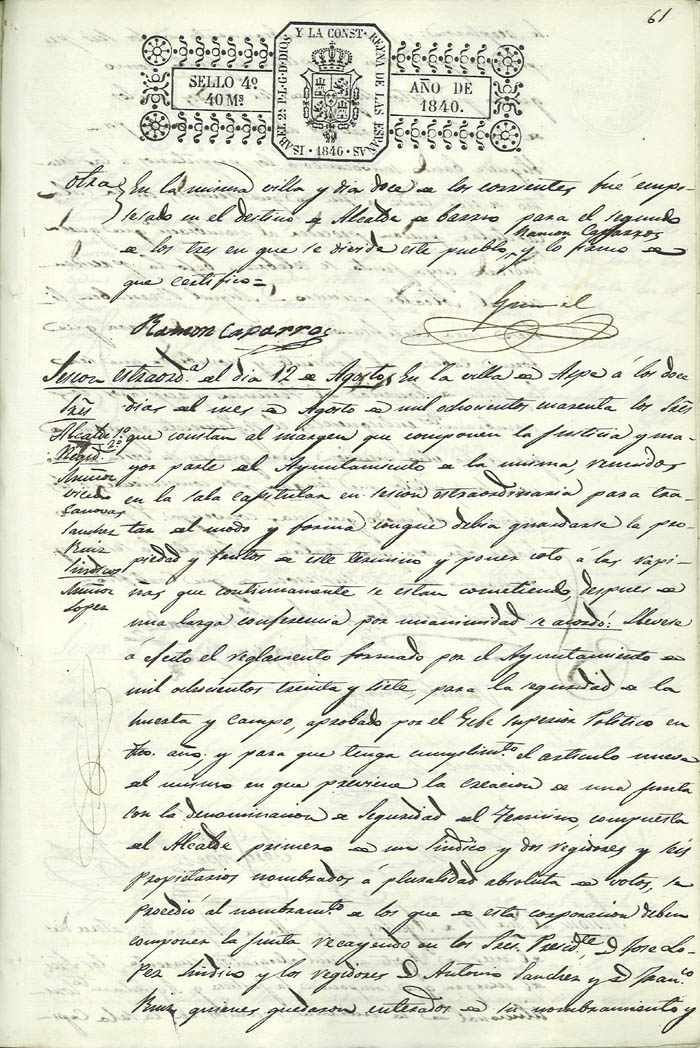 61
ISABEL 2ª P. L. G. D DIOS Y LA CONST. REYNA DE LAS ESPAÑAS · 1840 ·
SELLO 4º
40 Mˢ
AÑO DE
1840.
otra
En la misma villa y dia doce de los corrientes fué empo-
sesado en el destino de Alcalde de barrio para el segundo
Ramon Caparros
de los tres en que se divide este pueblo, y lo firmo de
que certifico=
Ramon Caparros
Sesion estraordª del dia 12 de Agosto
En la villa de Aspe á los doce
Sres
Alcalde 1º
2º
Regid.
Muñoz
Vicedo
Canovas
Sanchez
Ruiz
Sindicos
Muñoz
Lopez
dias del mes de Agosto de mil ochocientos cuarenta los Sres
que constan al margen que componen la Justicia y ma-
yor parte del Ayuntamiento de la misma, reunidos
en la sala capitular en sesion estraordinaria para tra-
tar del modo y forma conque debia guardarse la pro-
piedad y frutos de este termino y poner coto á las rapi-
ñas que continuamente se estan cometiendo, despues de
una larga conferencia por unanimidad se acordó: Llevese
á efecto el reglamento formado por el Ayuntamiento de
mil ochocientos treinta y siete, para la seguridad de la
huerta y campo, aprobado por el Gefe Superior Politico en
dho. año, y para que tenga cumplimto el articulo nueve
del mismo en que previene la creacion de una Junta
con la denominacion de Seguridad del Termino, compuesta
del Alcalde primero de un Sindico y dos regidores y seis
propietarios nombrados á pluralidad absoluta de votos, se
procedió al nombramto de los que de esta corporacion deben
componer la Junta recayendo en los Sres. Presidte, D Jose Lo-
pez Sindico y los regidores D Antonio Sanchez y D Franco
Ruiz, quienes quedaron enterados de su nombramiento y